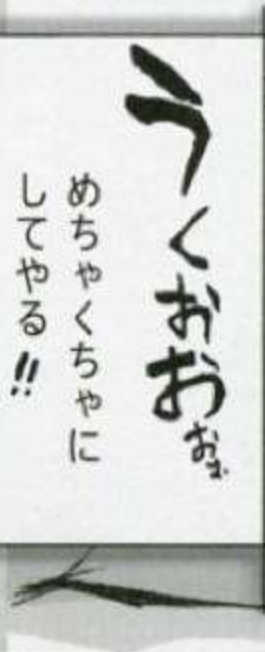 うくおおおぉ
めちゃくちゃに
してやる!!